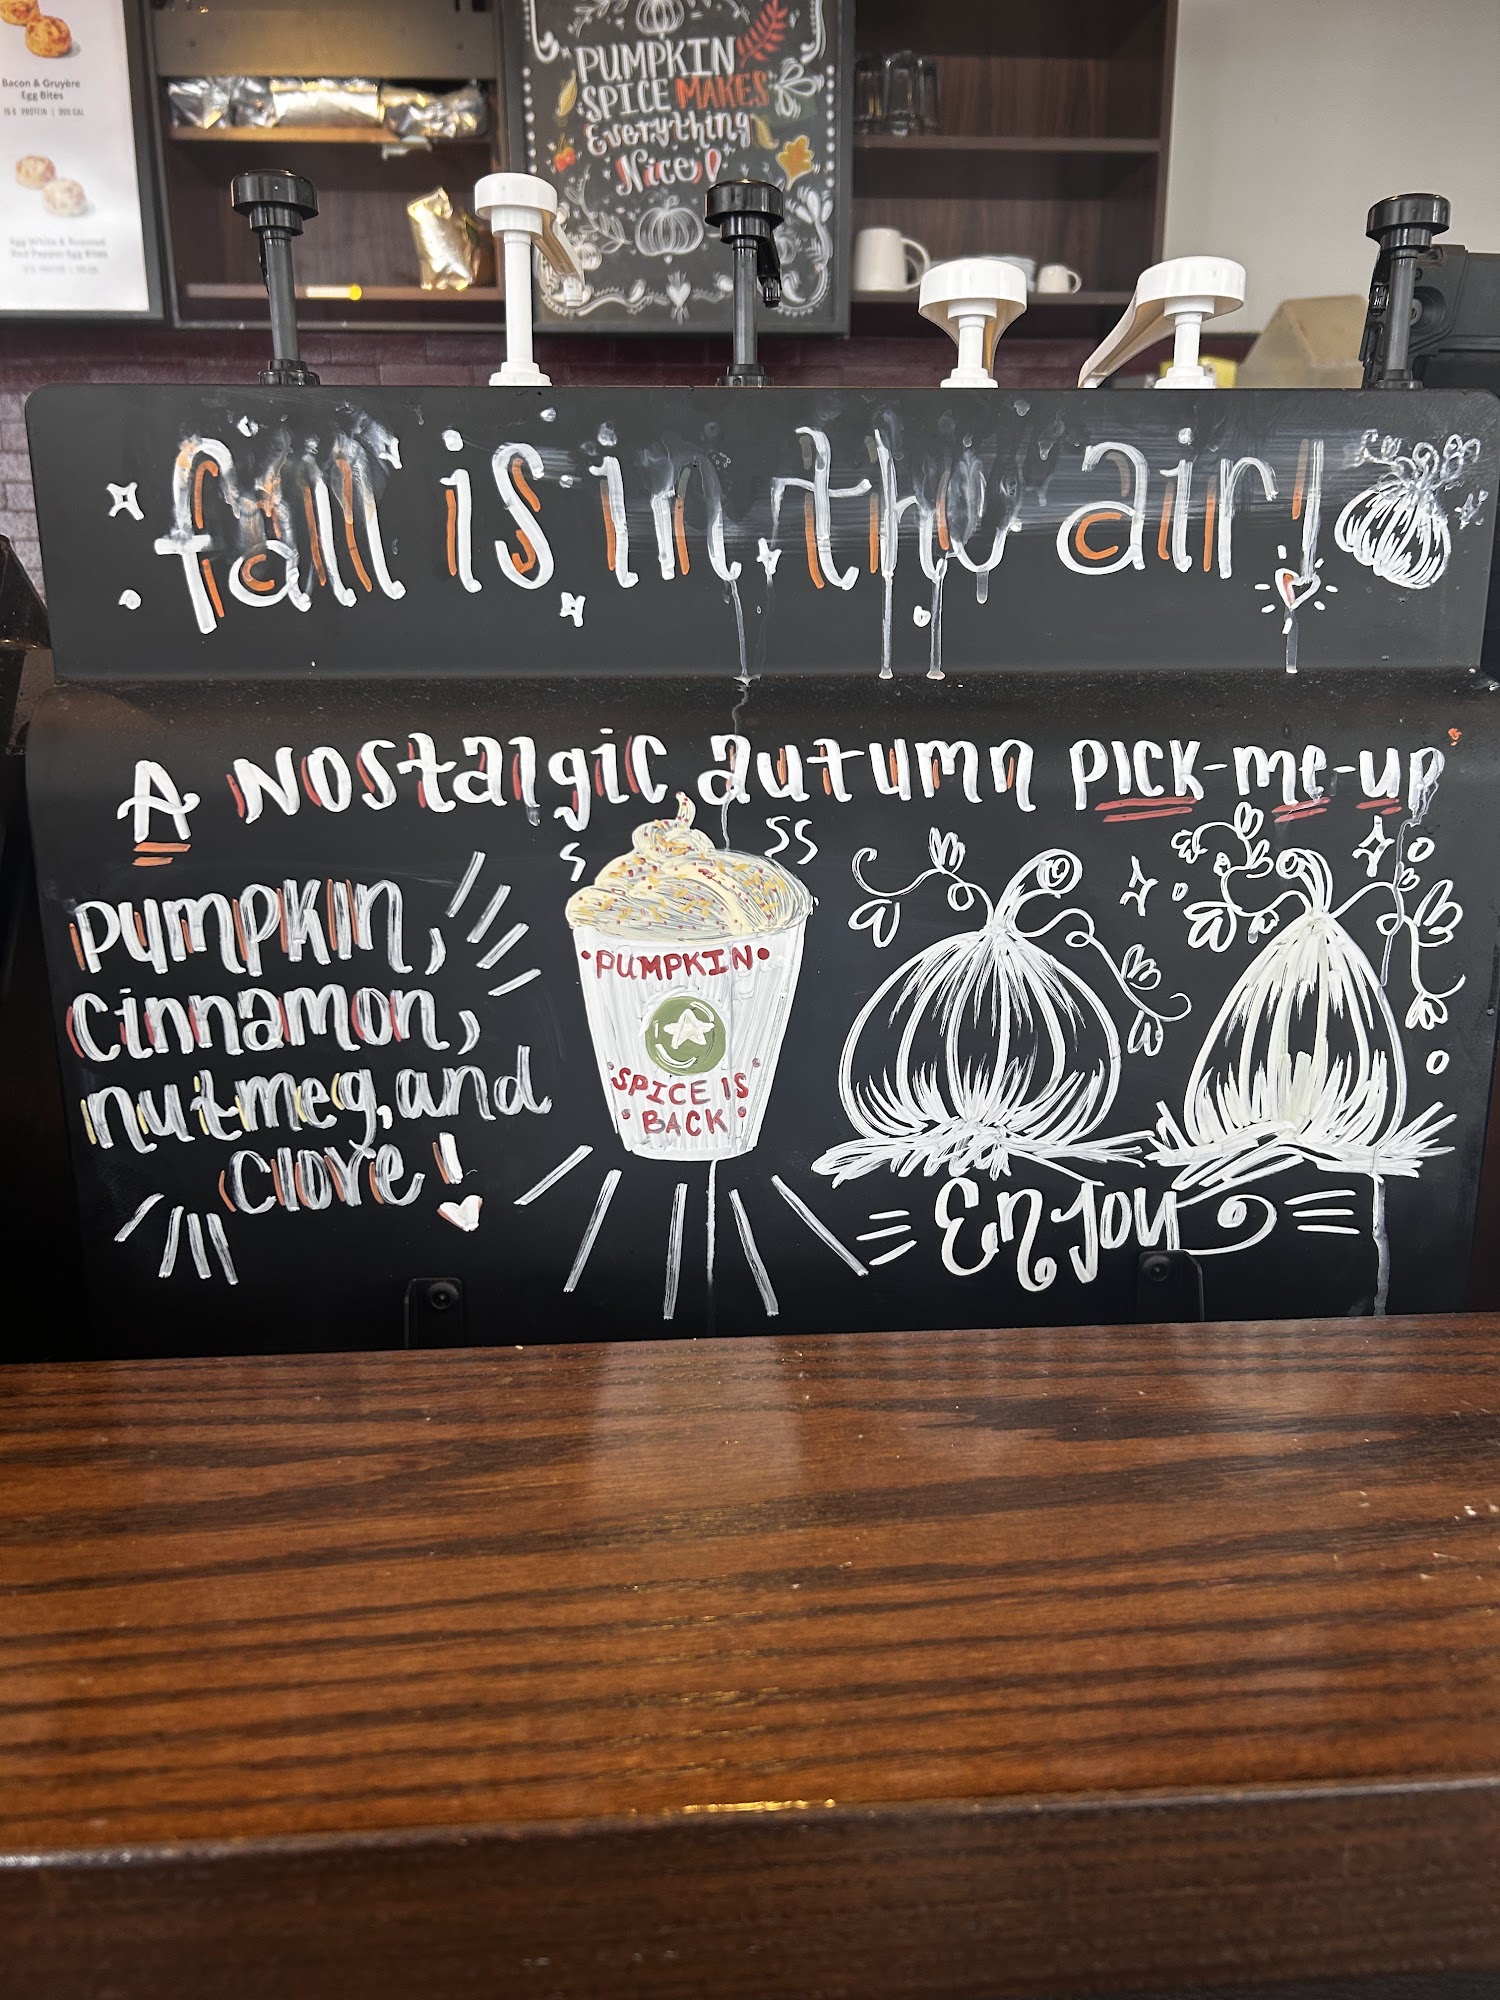 Bacon & Gruyère
Egg Bites
PUMPKIN
SPICE MAKES
Everything
Nice!
fall is in the air!
A Nostalgic autumn PICK-me-up
Pumpkin,
Cinnamon,
nutmeg, and
Clove!
•PUMPKIN•
SPICE IS
•BACK•
Enjoy
Egg White & Roasted
Red Pepper Egg Bites